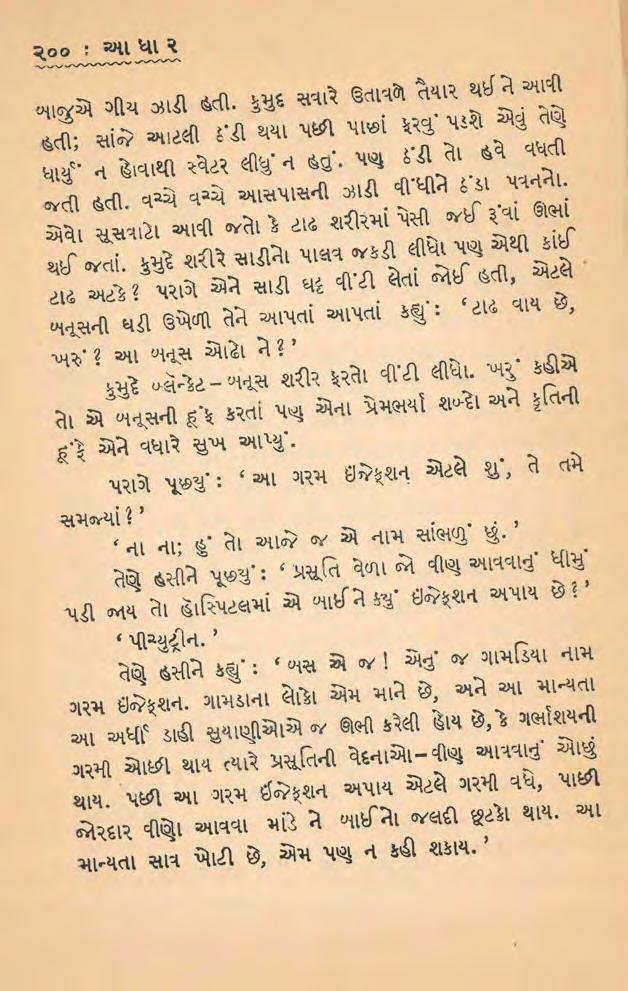 ૨૦૦ : આ ધા ર
બાજુએ ગીચ ઝાડી હતી. કુમુદ સવારે ઉતાવળે તૈયાર થઈ ને આવી
હતી; સાંજે આટલી ઠંડી થયા પછી પાછાં ફરવું પડશે એવું તેણે
ધાર્યું ન હોવાથી સ્વેટર લીધું ન હતું. પણ ઠંડી તો હવે વધતી
જતી હતી. વચ્ચે વચ્ચે આસપાસની ઝાડી વીંધીને ઠંડા પવનનો.
એવો સૂસવાટો આવી જતો કે ટાઢ શરીરમાં પેસી જઈ રૂંવાં ઊભાં
થઈ જતાં. કુમુદે શરીરે સાડીનો પાલવ જકડી લીધો પણ એથી કાંઈ
ટાઢ અટકે? પરાગે એને સાડી ઘટ્ટ વીંટી લેતાં જોઈ હતી, એટલે
બનૂસની ઘડી ઉખેળી તેને આપતાં આપતાં કહ્યું : ‘ટાઢ વાય છે,
ખરું? આ બનૂસ ઓઢો ને?’
કુમુદે બ્લૅન્કેટ – બનૂસ શરીર ફરતો વીંટી લીધો. ખરું કહીએ
તો એ બનૂસની હૂંફ કરતાં પણ એના પ્રેમભર્યા શબ્દો અને કૃતિની
હૂંફે એને વધારે સુખ આપ્યું.
પરાગે પૂછ્યું : ‘આ ગરમ ઇંજેક્શન એટલે શું, તે તમે
સમજ્યાં?’
‘ના ના; હું તો આજે જ એ નામ સાંભળું છું.’
તેણે હસીને પૂછ્યું : ‘પ્રસૂતિ વેળા જો વીણ આવવાનું ધીમું
પડી જાય તો હૉસ્પિટલમાં એ બાઈ ને કયું ઇંજેક્શન અપાય છે?’
‘પીચ્યુટ્રીન.’
તેણે હસીને કહ્યું : ‘બસ એ જ! એનું જ ગામડિયા નામ
ગરમ ઇંજેક્શન. ગામડાના લોકો એમ માને છે, અને આ માન્યતા
આ અર્ધી ડાહી સુયાણીઓએ જ ઊભી કરેલી હોય છે, કે ગર્ભાશયની
ગરમી ઓછી થાય ત્યારે પ્રસૂતિની વેદનાઓ – વીણ આવવાનું ઓછું
થાય. પછી આ ગરમ ઈંજેક્શન અપાય એટલે ગરમી વધે, પાછી
જોરદાર વીણો આવવા માંડે ને બાઈનો જલદી છૂટકો થાય. આ
માન્યતા સાવ ખોટી છે, એમ પણ ન કહી શકાય.’